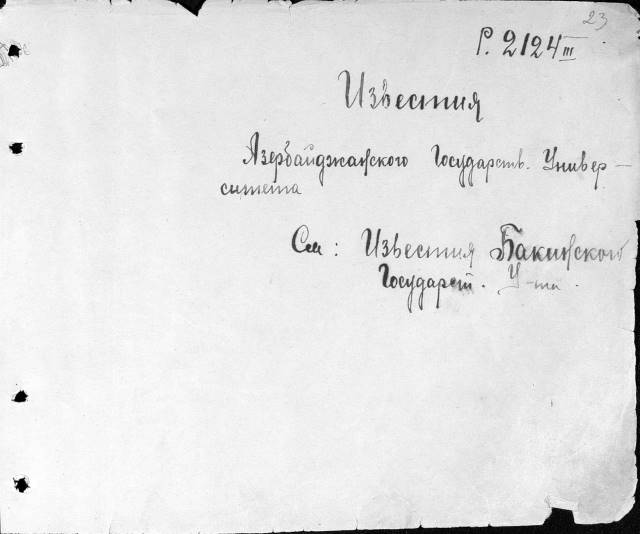 23
Р. 2124 III
Известия
Азербайджанского Государств. Универ-
ситета
См: Известия Бакинского
Государст. У-та.